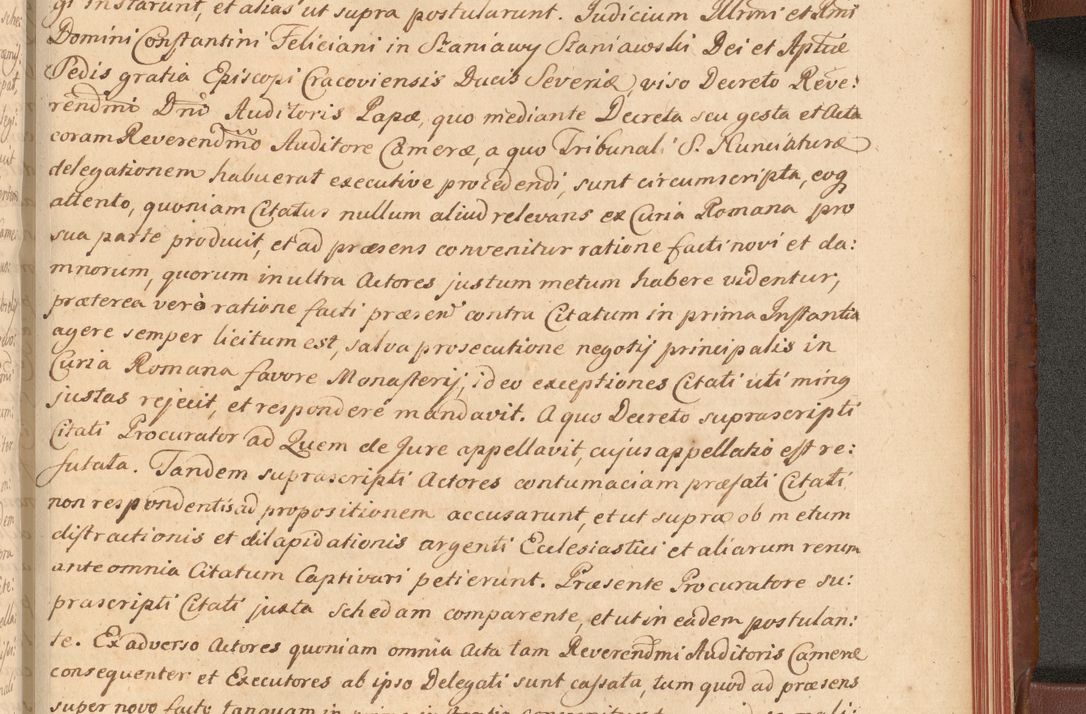 gi instarunt, et alias ut supra postularunt. Judicium Illrmi et Rmi
Domini Constantini Feliciani in Szaniawy Szaniawski Dei et Aptlæ
Sedis gratia Episcopi Cracoviensis Ducis Severiæ, viso Decreto Reve:
rendmi Dnĩ Auditoris Papæ, quo mediante Decreta seu gesta et Acta
coram Reverendmõ Auditore Cameræ, a quo Tribunal S. Nunciaturæ
delegationem habuerat executive procedendi, sunt circumscripta, eoq
attento, quoniam Citatus nullum aliud relevans ex Curia Romana pro
sua parte producit, et ad præsens convenitur ratione facti novi et da:
mnorum, quorum in ultra Actores justum metum habere videntur,
præterea verò ratione facti præsen contra Citatum in prima Instantia
agere semper licitum est, salva prosecutione negotij principalis in
Curia Romana favore Monasterij, ideo exceptiones Citati uti minq
justas rejecit, et respondere mandavit. A quo Decreto suprascripti
Citati Procurator ad Quem de Jure appellavit, cujus appellatio est re:
futata. Tandem suprascripti Actores contumaciam præfati Citati
non respondentis ad propositionem accusarunt, et ut supra ob metum
distractionis et dilapidationis argenti Ecclesiastici et aliarum rerum
ante omnia Citatum Captivari petierunt. Præsente Procuratore su:
prascripti Citati juxta schedam comparente, et ut in eadem postulan:
te. Ex adverso Actores quoniam omnia Acta tam Reverendmi Auditoris Cameræ
consequenter et Executores ab ipso Delegati sunt cassata, tum quod ad præsens
super novo facto tanquam in